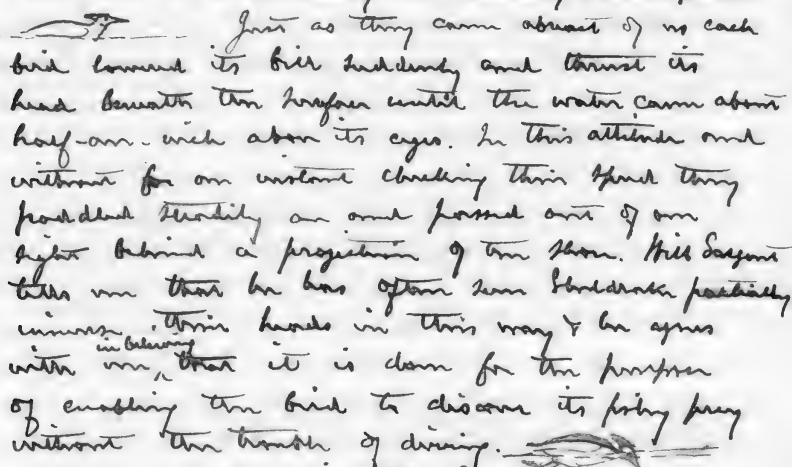 Just as they came abreast of us each
bird lowered its bill suddenly and thrust its
head beneath the surface until the water came about
half-an-inch above its eyes. In this attitude and
without for an instant checking their speed they
paddled steadily on and passed out of our
sight behind a projection of the shore. Will Sargent
tells me that he has often seen Sheldrake partially
immerse their heads in this way & he agrees
with me in believing that it is done for the purpose
of enabling the bird to discover its fishy prey
without the trouble of diving.